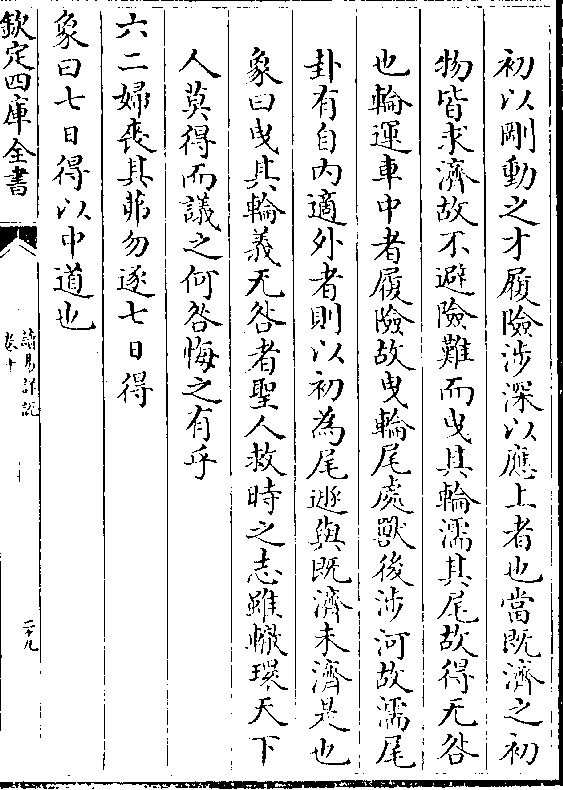 初以剛動之才履險涉深以應上者也當既濟之初
物皆求濟故不避險難而曳其輪濡其尾故得无咎
也輪運車中者履險故曳輪尾處獸後涉河故濡尾
卦有自內適外者則以初為尾遯與既濟未濟是也
象曰曳其輪義无咎者聖人救時之志雖轍環天下
人莫得而議之何咎悔之有乎
六二婦喪其茀勿逐七日得
象曰七日得以中道也
欽定四庫全書
讀易詳說
卷十
二十九